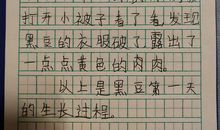 打开小被子看了看发现
黑豆的衣服破了露出了
一点点黄色的肉肉。
以上是黑豆第一天
的生长过程。